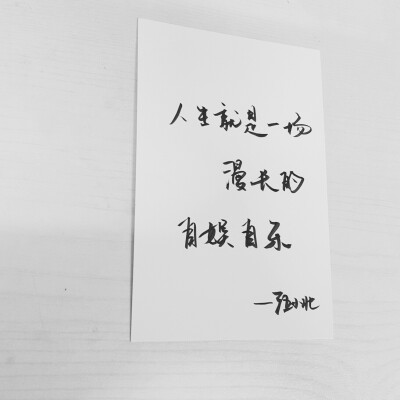 人生就是一场
漫长的
自娱自乐